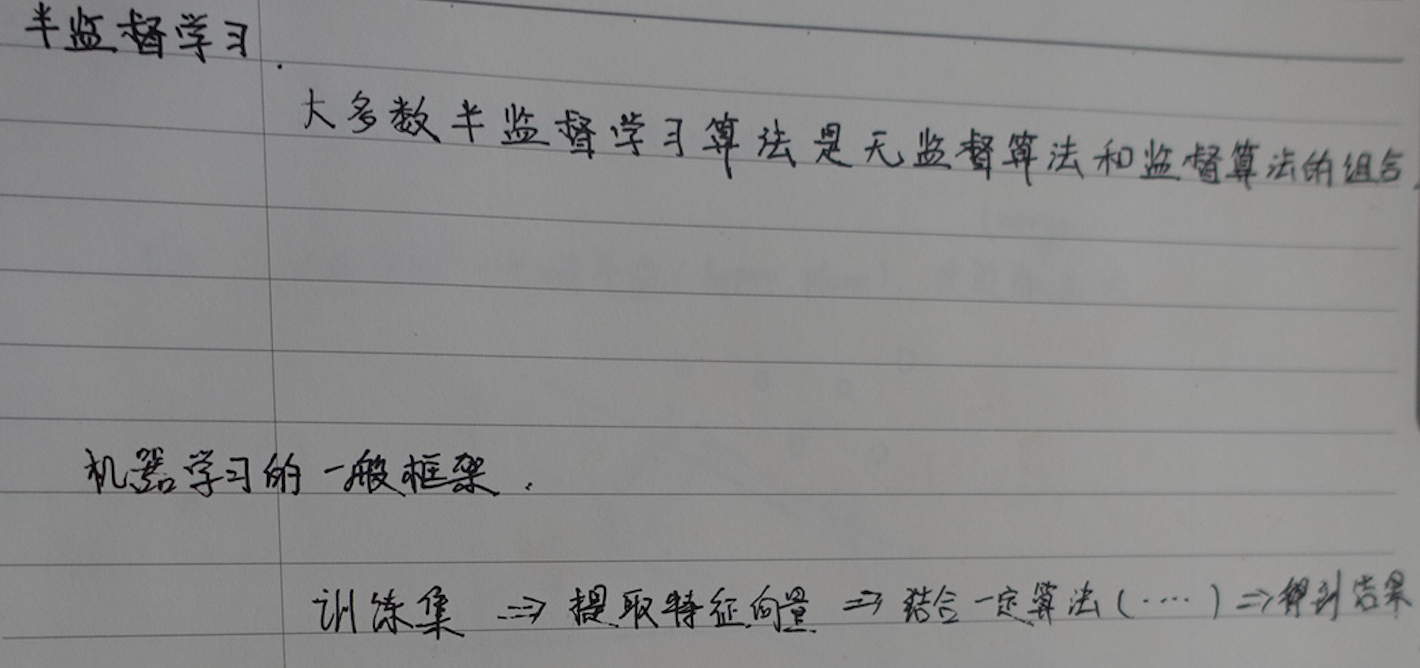 半监督学习.
大多数半监督学习算法是无监督算法和监督算法的组合
机器学习的一般框架.
训练集 => 提取特征向量 => 结合一定算法(····) => 得到结果